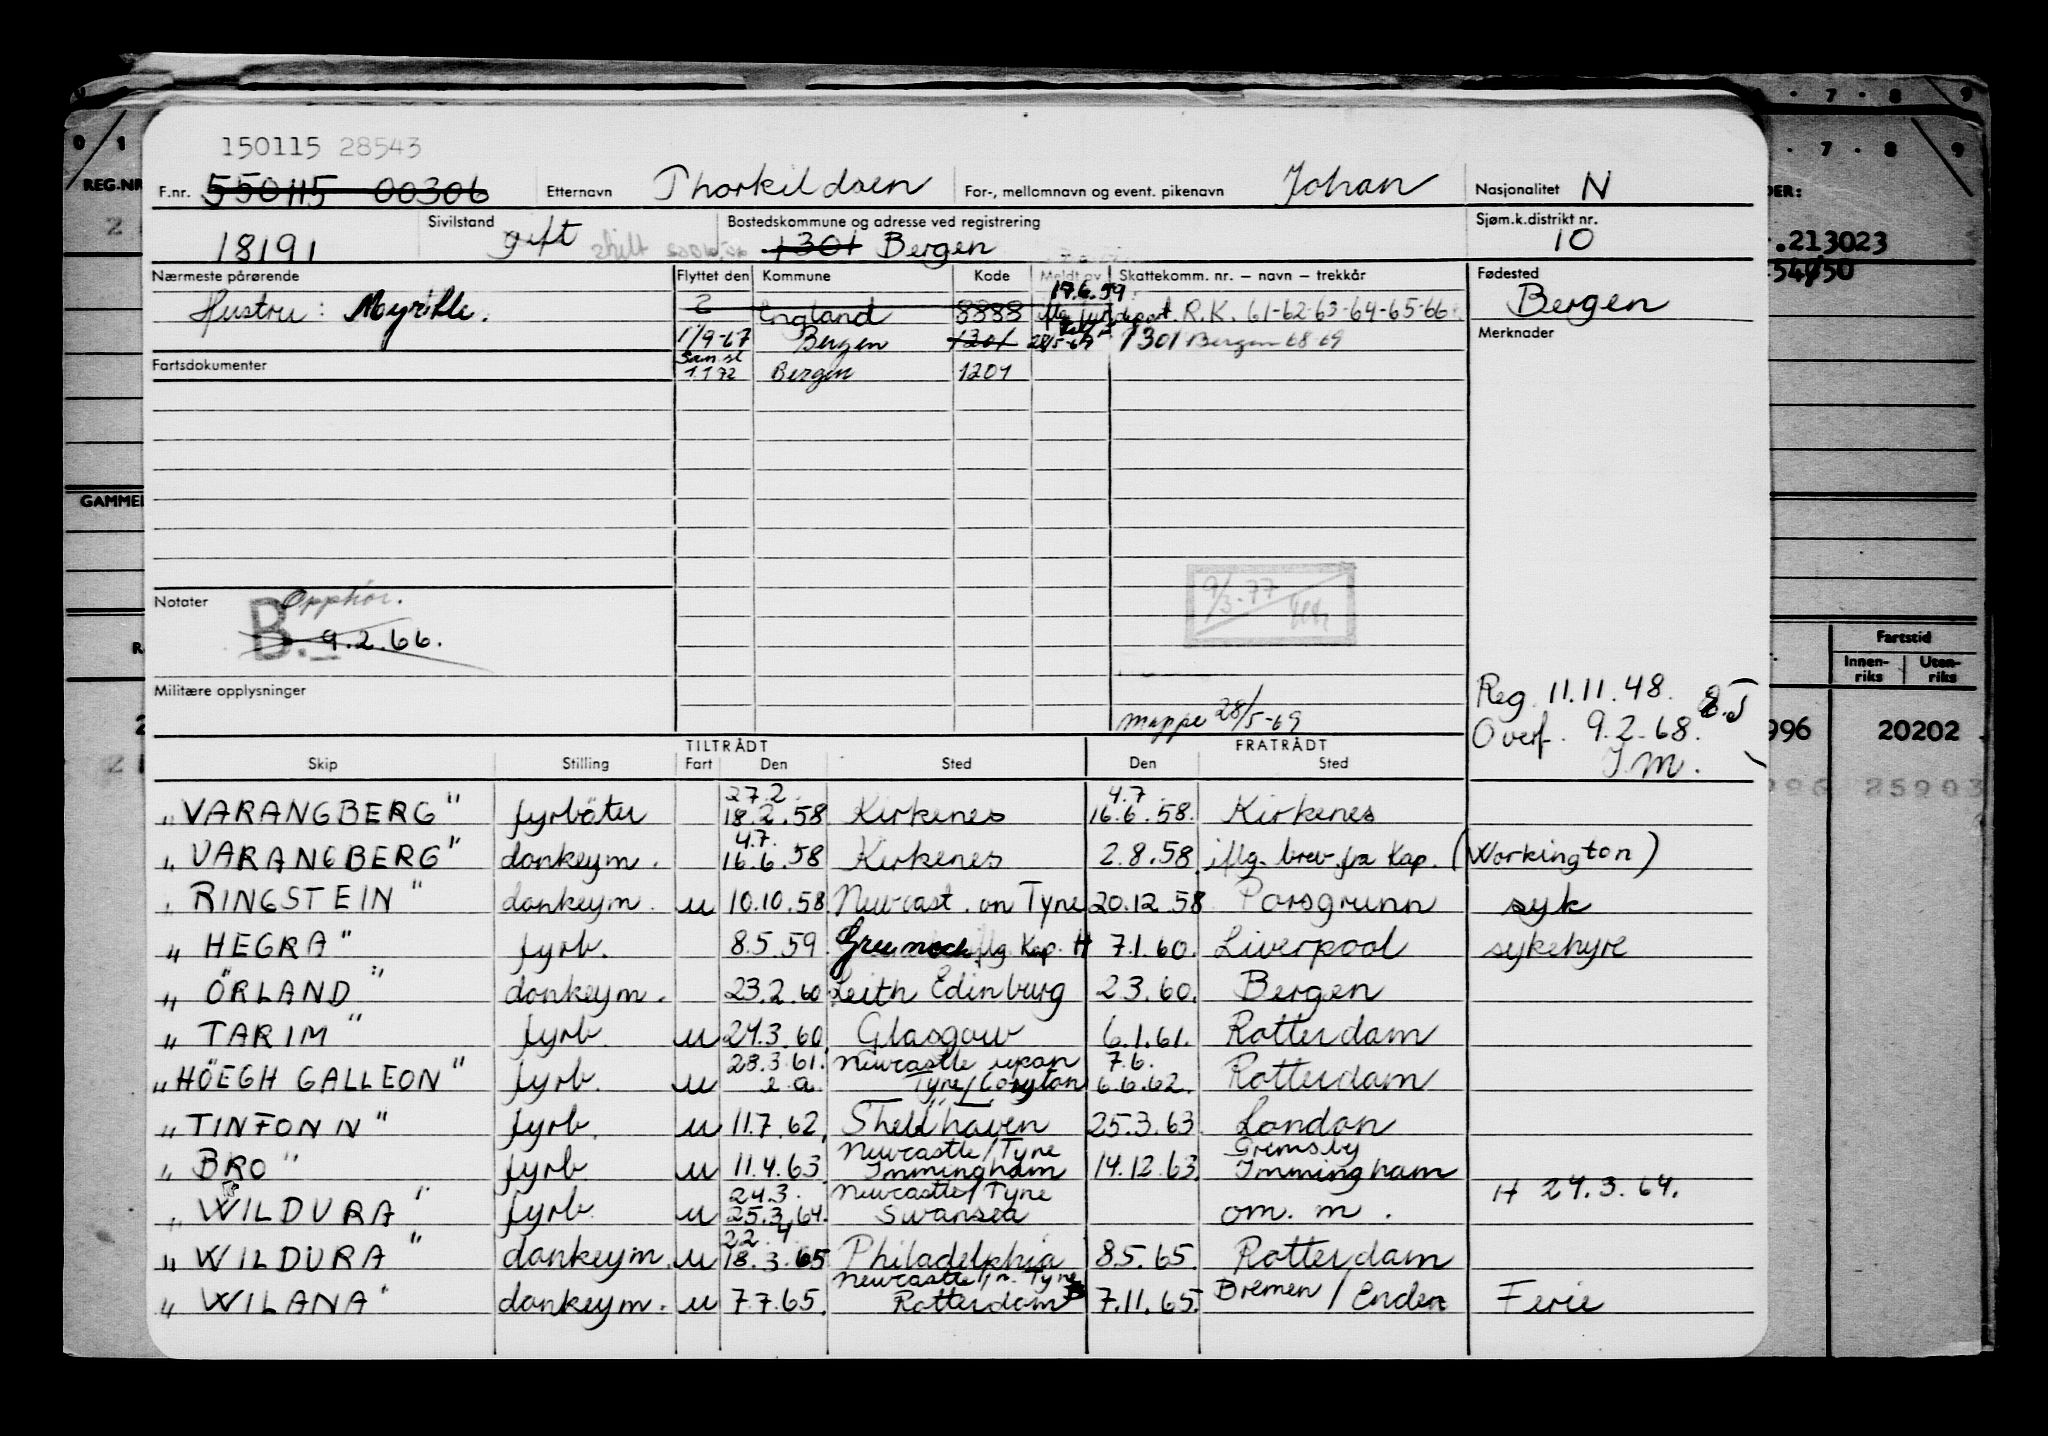 0 1 · 7 · 8 9
150115 28543
· 7 · 8 9
REG.NR
F.nr. 550115 00306 Etternavn Thorkildsen For-, mellomnavn og event. pikenavn Johan Nasjonalitet N
DER:
18191 Sivilstand gift skilt Bostedskommune og adresse ved registrering 1301 Bergen Sjøm.k.distrikt nr. 10
.213023
54450
Nærmeste pårørende Flyttet den Kommune Kode Meldt av Skattekomm. nr. – navn – trekkår Fødested
Hustru: 2 England 8888 17.6.59 R.K. 61-62-63-64-65-66 Bergen
1/9-67 Bergen 1301 28/5-69 1301 Bergen 68 69 Merknader
Fartsdokumenter Sam.sl 1.1 72 Bergen 1201
GAMMEL
9/3-77
Notater B. Opphør.
9.2.66.
Fartstid
Innen-riks Uten-riks
Militære opplysninger
Reg. 11.11.48.
mappe 28/5-69
Overf. 9.2.68.
J.M.
996 20202
25903
TILTRÅDT FRATRÅDT
Skip Stilling Fart Den Sted Den Sted
27.2. 4.7.
"VARANGBERG" fyrböter 18.2.58 Kirkenes 16.6.58. Kirkenes
4.7.
"VARANGBERG" donkeym. 16.6.58 Kirkenes 2.8.58 iflg. brev fra Kap. (Workington)
"RINGSTEIN" donkeym. u 10.10.58 Newcast. on Tyne 20.12.58 Porsgrunn syk
"HEGRA" fyrb. 8.5.59 Greenock iflg. Kap. H 7.1.60. Liverpool sykehyre
"ÖRLAND" donkeym. 23.2.60 Leith Edinburg 23.60. Bergen
"TARIM" fyrb. u 24.3.60 Glasgow 6.1.61. Rotterdam
28.3.61. Newcastle upon 7.6.
"HÖEGH GALLEON" fyrb. u e.a. Tyne/Coryton 6.6.62. Rotterdam
"TINFONN" fyrb. u 11.7.62. Shellhaven 25.3.63 London
Newcastle/Tyne Gremsby
"BRO" fyrb. u 11.4.63. Immingham 14.12.63. Immingham
24.3. Newcastle/Tyne H 24.3.64.
"WILDURA" fyrb. u 25.3.64. Swansea om. m.
22.4
"WILDURA" donkeym. u 18.3.65 Philadelphia 8.5.65. Rotterdam
Newcastle/n. Tyne
"WILANA" donkeym. u 7.7.65. Rotterdam 7.11.65. Bremen / Enden Ferie